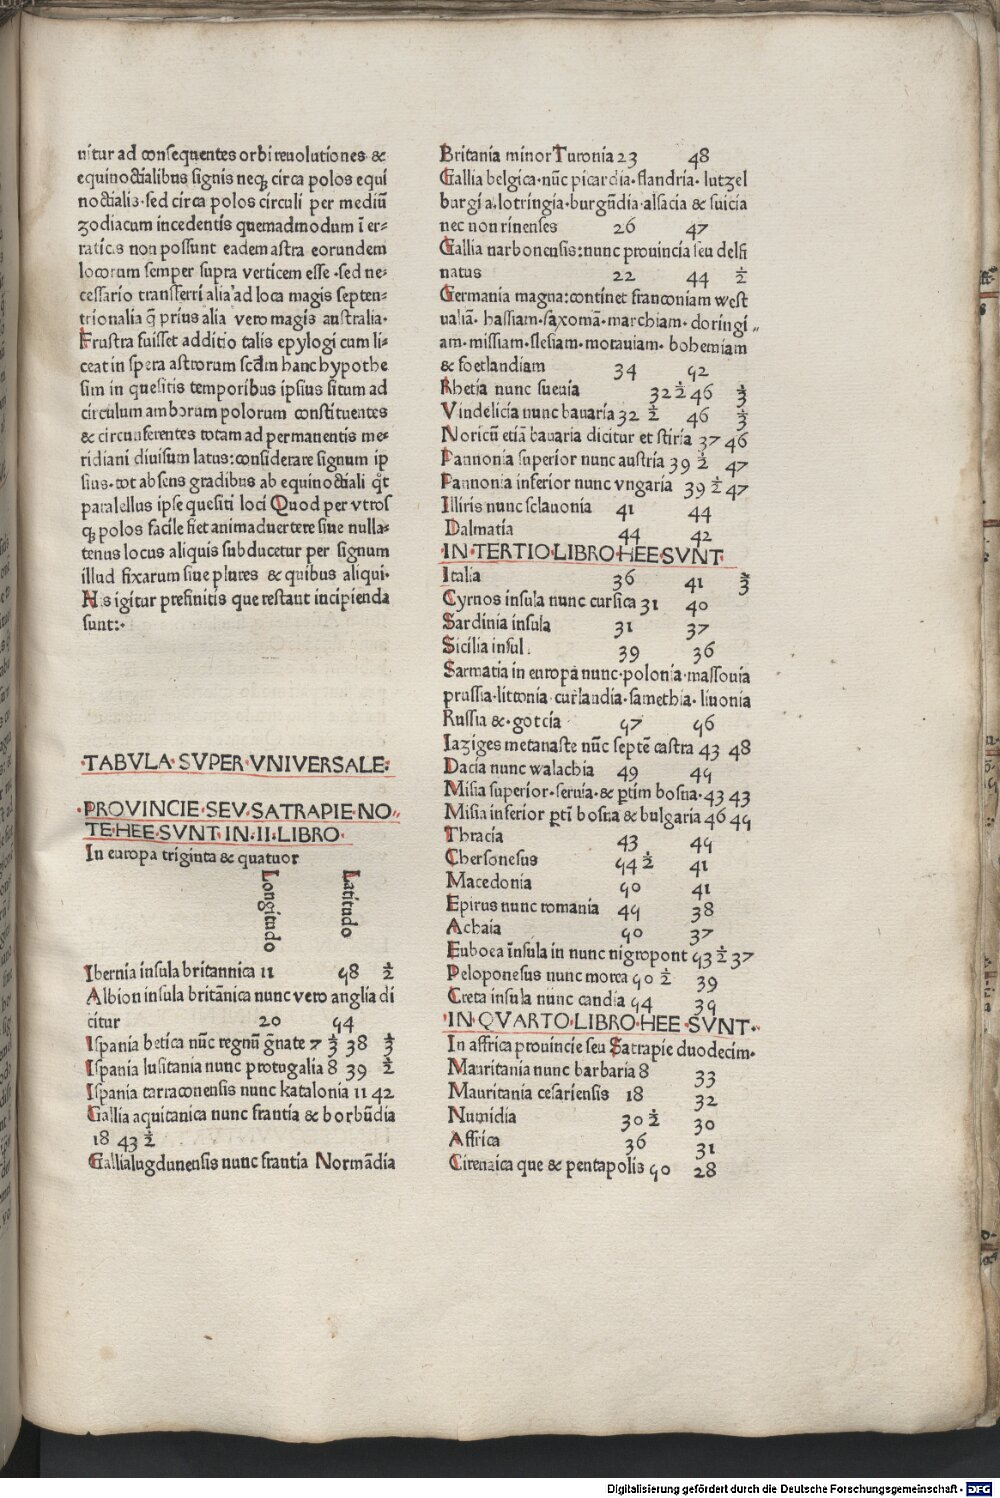 nitur ad consequentes orbi reuolutiones &
equinoctialibus signis neq; circa polos equi
noctialis·sed circa polos circuli per mediũ
zodiacum incedentis quemadmodum ĩ er-
raticis non possunt eadem astra eorundem
locorum semper supra verticem esse·sed ne-
cessario transferri alia ad loca magis septen-
trionalia q̃ prius alia vero magis australia·
Frustra fuisset additio talis epylogi cum li-
ceat in spera astrorum scdm̃ hanc hypothe
sim in quesitis temporibus ipsius situm ad
circulum amborum polorum constituentes
& circunferentes totam ad permanentis me-
ridiani diuisum latus:considerare signum ip
sius·tot absens gradibus ab equinoctiali q̊t
paralellus ipse quesiti loci Quod per vtros
q; polos facile fiet animaduertere siue nulla-
tenus locus aliquis subducetur per signum
illud fixarum siue plures & quibus aliqui·
His igitur prefinitis que restant incipienda
sunt:·
·TABVLA·SVPER·VNIVERSALE·
·PROVINCIE·SEV·SATRAPIE·NO-
TE·HEE·SVNT·IN·II·LIBRO·
In europa triginta & quatuor
Longitudo Latitudo
Ibernia insula britannica 11 48 ½
Albion insula britãnica nunc vero anglia di
citur 20 44
Ispania betica nũc regnũ g̃nate 7 ⅓ 38 ⅓
Ispania lusitania nunc protugalia 8 39 ½
Ispania tarraconensis nunc katalonia 11 42
Gallia aquitanica nunc frantia & borbũdia
18 43 ½
Gallialugdunensis nunc frantia Normãdia
Britania minor Turonia 23 48
Gallia belgica·nũc picardia·flandria·lutzel
burgia·lotringia·burgũdia·alsacia & suicia
nec non rinenses 26 47
Gallia narbonensis:nunc prouincia seu delfi
natus 22 44 ½
Germania magna:continet franconiam west
ualiã·hassiam·saxomã·marchiam·doringi
am·missiam·slesiam·morauiam·bohemiam
& foetlandiam 34 42
Rhetia nunc sueuia 32 ½ 46 ⅓
Vindelicia nunc bauaria 32 ½ 46 ⅓
Noricũ etiã bauaria dicitur et stiria 37 46
Pannonia superior nunc austria 39 ½ 47
Pannonia inferior nunc vngaria 39 ½ 47
Illiris nunc sclauonia 41 44
Dalmatia 44 42
·IN·TERTIO·LIBRO·HEE·SVNT
Italia 36 41 ⅔
Cyrnos insula nunc cursica 31 40
Sardinia insula 31 37
Sicilia insul. 39 36
Sarmatia in europa nunc·polonia·massouia
prussia·littonia·curlandia·samethia·liuonia
Russia &·gotcia 47 46
Iaziges metanaste nũc septẽ castra 43 48
Dacia nunc walachia 49 44
Misia superior·seruia·& ptim bosna·43 43
Misia inferior pti bosna & bulgaria 46 44
Thracia 43 44
Chersonesus 44 ½ 41
Macedonia 40 41
Epirus nunc romania 44 38
Achaia 40 37
Euboea ĩnsula in nunc nigropont 43 ½ 37
Peloponesus nunc morea 40 ½ 39
Creta insula nunc candia 44 34
·IN·QVARTO·LIBRO·HEE·SVNT·
In affrica prouincie seu Satrapie duodecim·
Mauritania nunc barbaria 8 33
Mauritania cesariensis 18 32
Numidia 30 ½ 30
Affrica 36 31
Cirenaica que & pentapolis 40 28
Digitalisierung gefördert durch die Deutsche Forschungsgemeinschaft · DFG